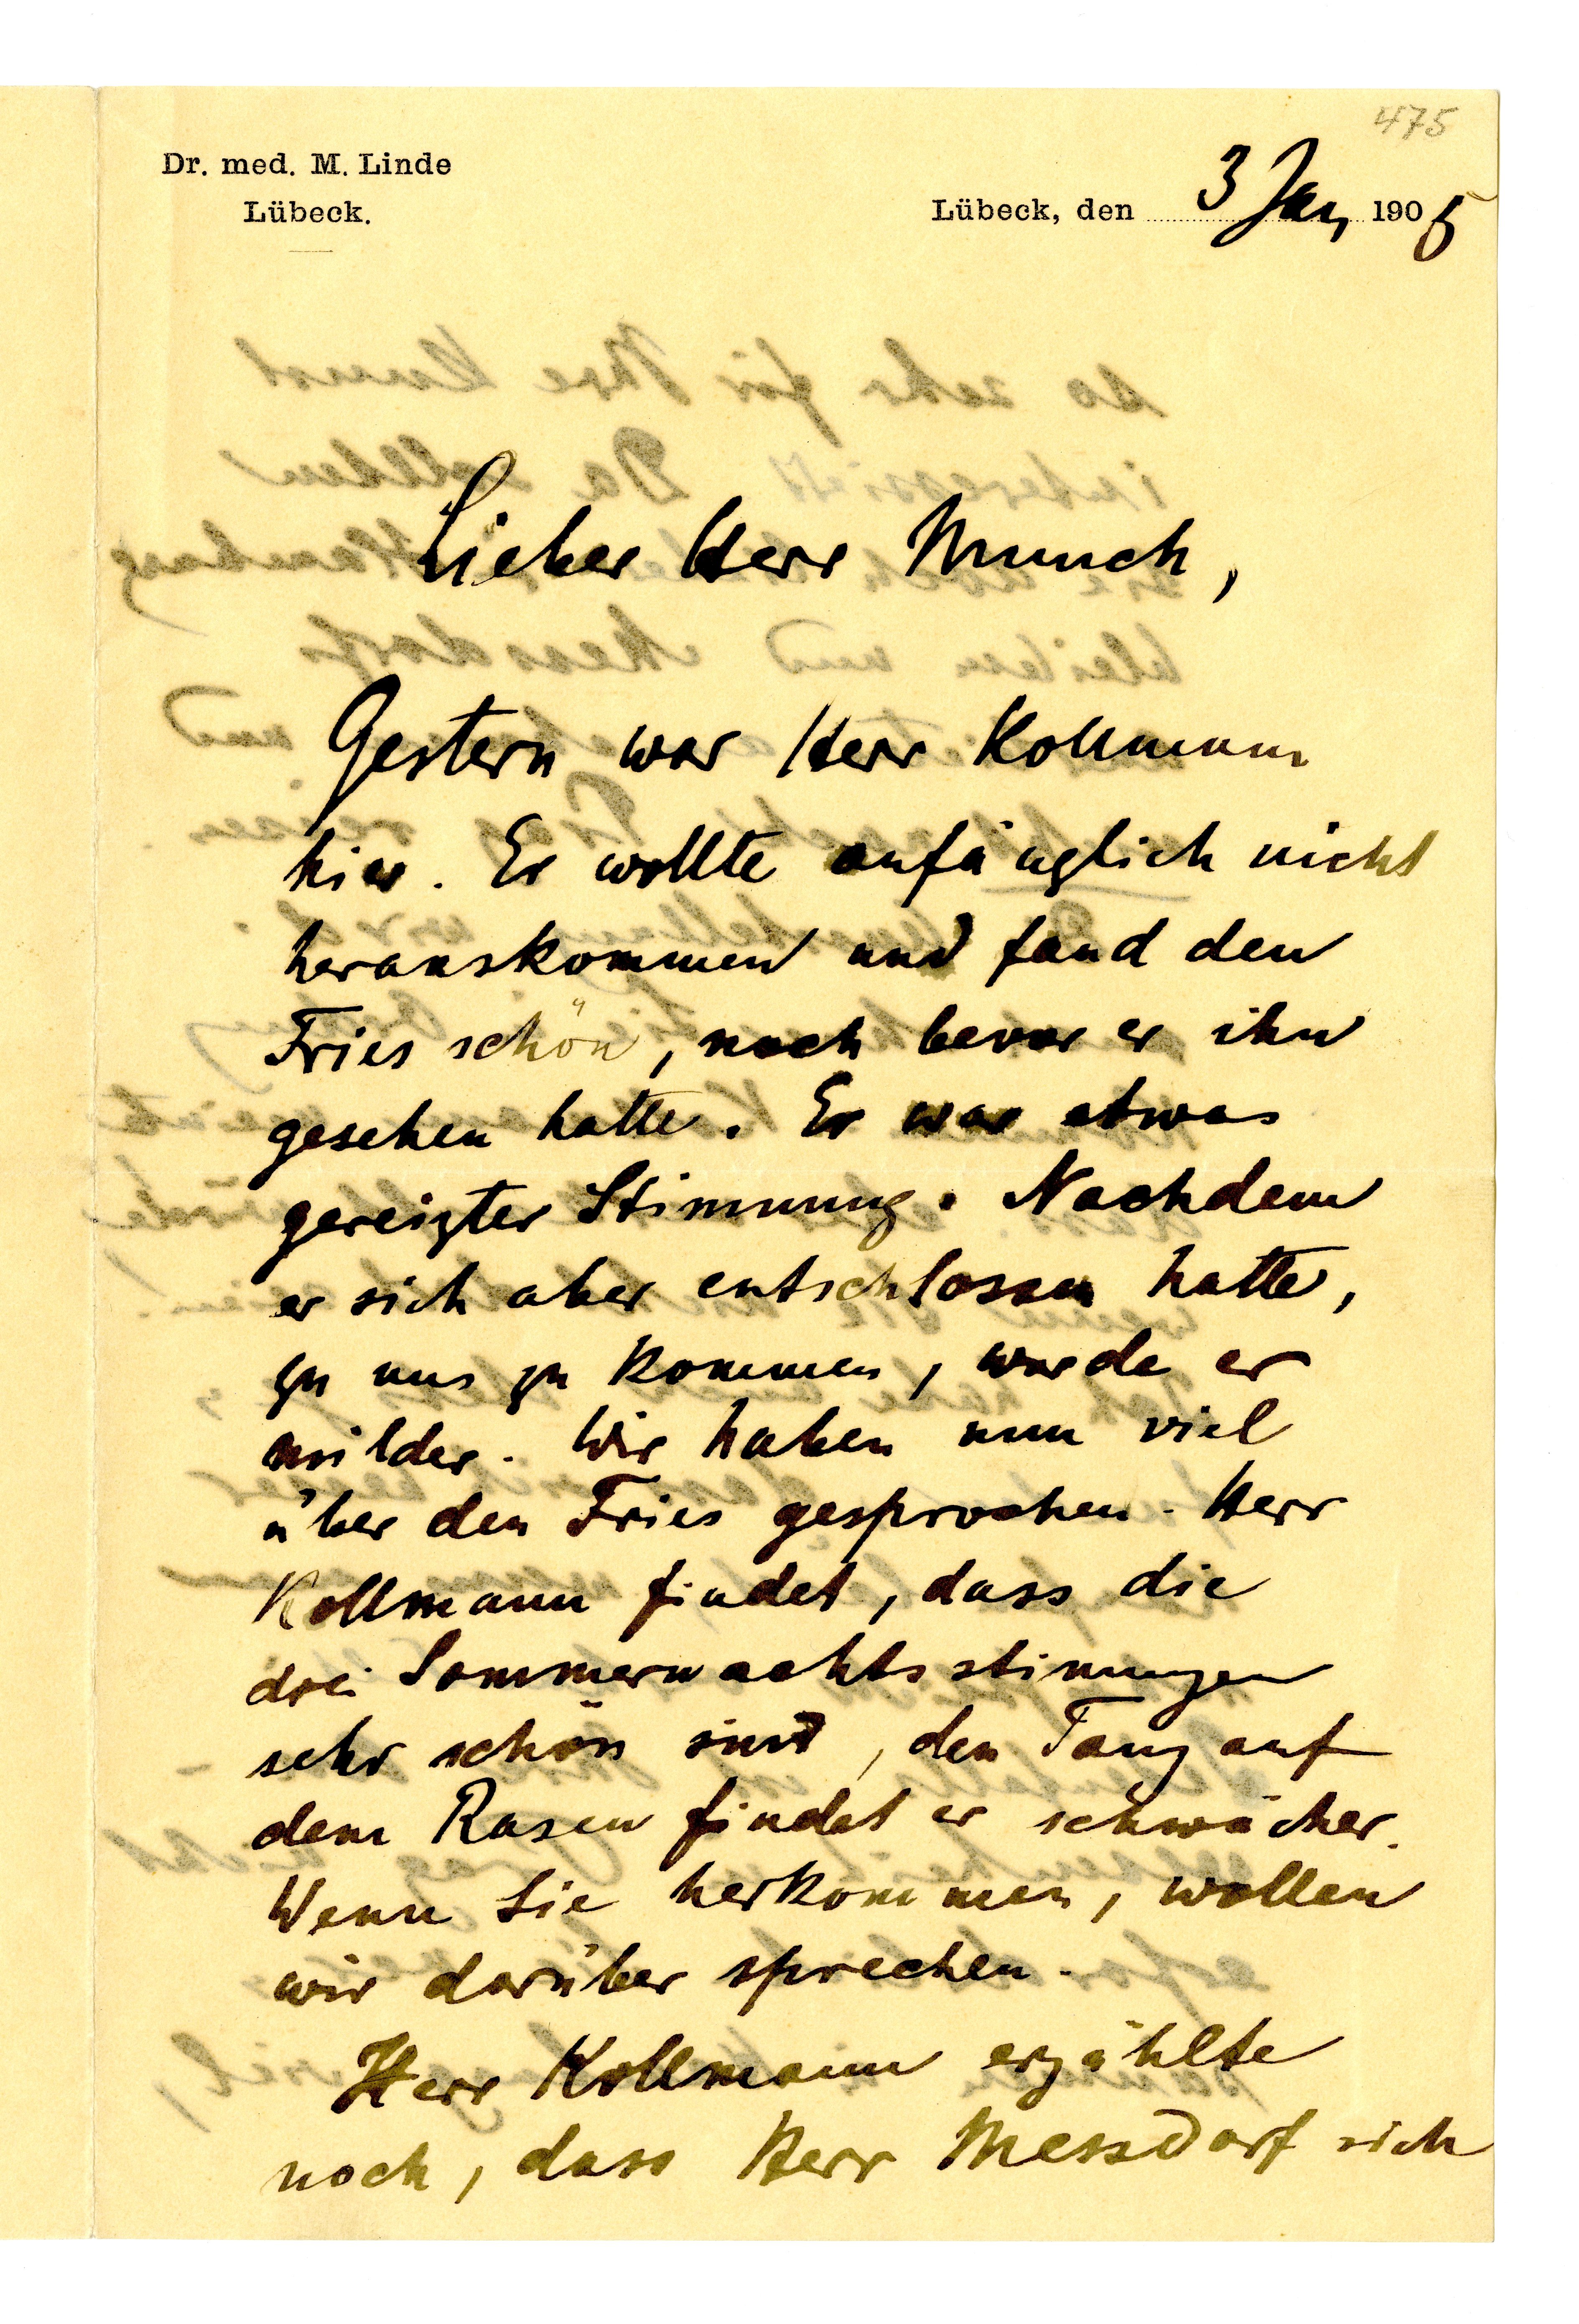 475
Dr. med. M. Linde
Lübeck.
Lübeck, den 3 Jan, 1905
Lieber Herr Munch,
Gestern war Herr Kollmann
hier. Er wollte anfänglich nicht
herauskommen und fand den
Fries schön, noch bevor er ihn
gesehen hatte. Er war etwas
gereizter Stimmung. Nachdem
er sich aber entschlossen hatte,
zu uns zu kommen, wurde er
milder. Wir haben nun viel
über den Fries gesprochen. Herr
Kollmann findet, dass die
drei Sommernachtsstimungen
sehr schön sind, den Tanz auf
dem Rasen findet er schwächer.
Wenn Sie herkommen, wollen
wir darüber sprechen.
Herr Kollmann erzählte
noch, dass Herr Messdorf sich